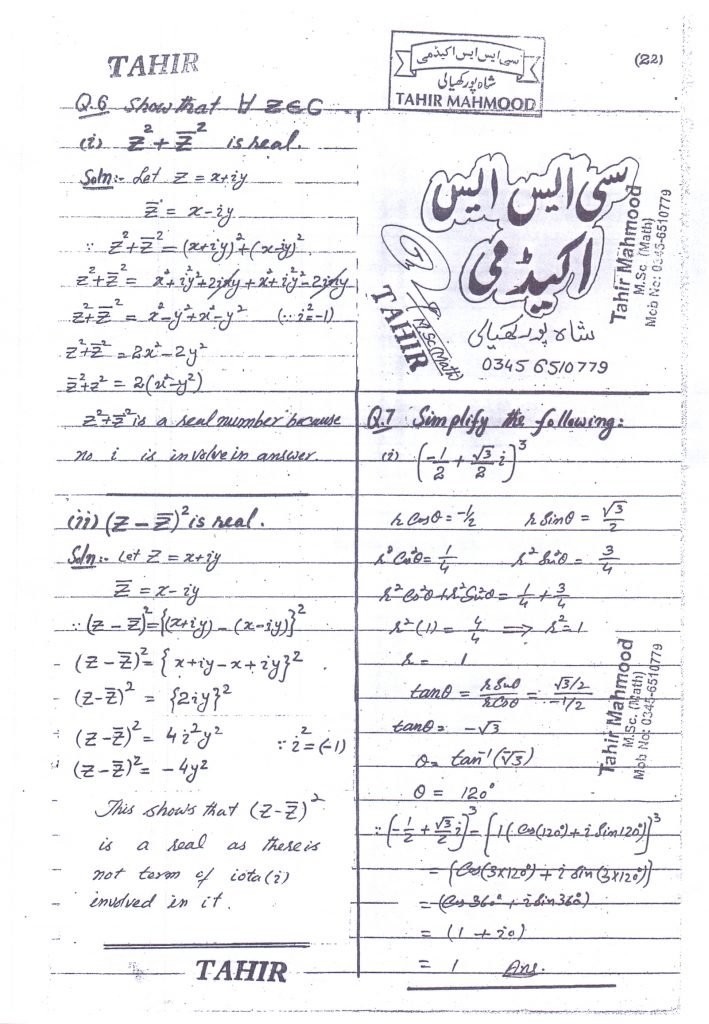 TAHIR
سی ایس ایس اکیڈمی
شاہ پور کھیالی
TAHIR MAHMOOD
(22)
Q.6 Show that ∀ Z∈C
(i) Z² + Z̄² is real.
Soln:- Let Z = x+iy
Z̄ = x-iy
∵ Z²+Z̄² = (x+iy)²+(x-iy)²
Z²+Z̄² = x²+i²y²+2ixy+x²+i²y²-2ixy
Z²+Z̄² = x²-y²+x²-y² (∵ i²=-1)
Z²+Z̄² = 2x²-2y²
Z̄²+Z² = 2(x²-y²)
Z²+Z̄² is a real number because
no i is involve in answer
(ii) (Z - Z̄)² is real.
Soln:- Let Z = x+iy
Z̄ = x-iy
∵ (Z - Z̄)² = {(x+iy) - (x-iy)}²
(Z - Z̄)² = { x+iy - x + iy}².
(Z-Z̄)² = {2iy}²
(Z-Z̄)² = 4i²y² ∵ i² = (-1)
(Z-Z̄)² = -4y²
This shows that (Z-Z̄)²
is a real as there is
not term of iota(i)
involved in it.
TAHIR
سی ایس ایس
اکیڈمی
شاہ پور کھیالی
0345 6510779
M.Sc(Math)
TAHIR
Tahir Mahmood
M.Sc. (Math)
Mob No: 0345-6510779
Q.7 Simplify the following:
(i) (-1/2 + √3/2 i)³
r Cosθ = -1/2 r Sinθ = √3/2
r²Cos²θ = 1/4 r²Sin²θ = 3/4
r²Cos²θ + r²Sin²θ = 1/4 + 3/4
r²(1) = 4/4 ⟹ r² = 1
r = 1
tanθ = rSinθ/rCosθ = √3/2 / -1/2
tanθ = -√3
θ = tan⁻¹(-√3)
θ = 120°
∵ (-1/2 + √3/2 i)³ = [1(Cos(120°) + i Sin120°)]³
= [Cos(3×120°) + i Sin(3×120°)]
= (Cos 360° + i sin 360°)
= (1 + i0)
= 1 Ans.
Tahir Mahmood
M.Sc. (Math)
Mob No: 0345-6510779